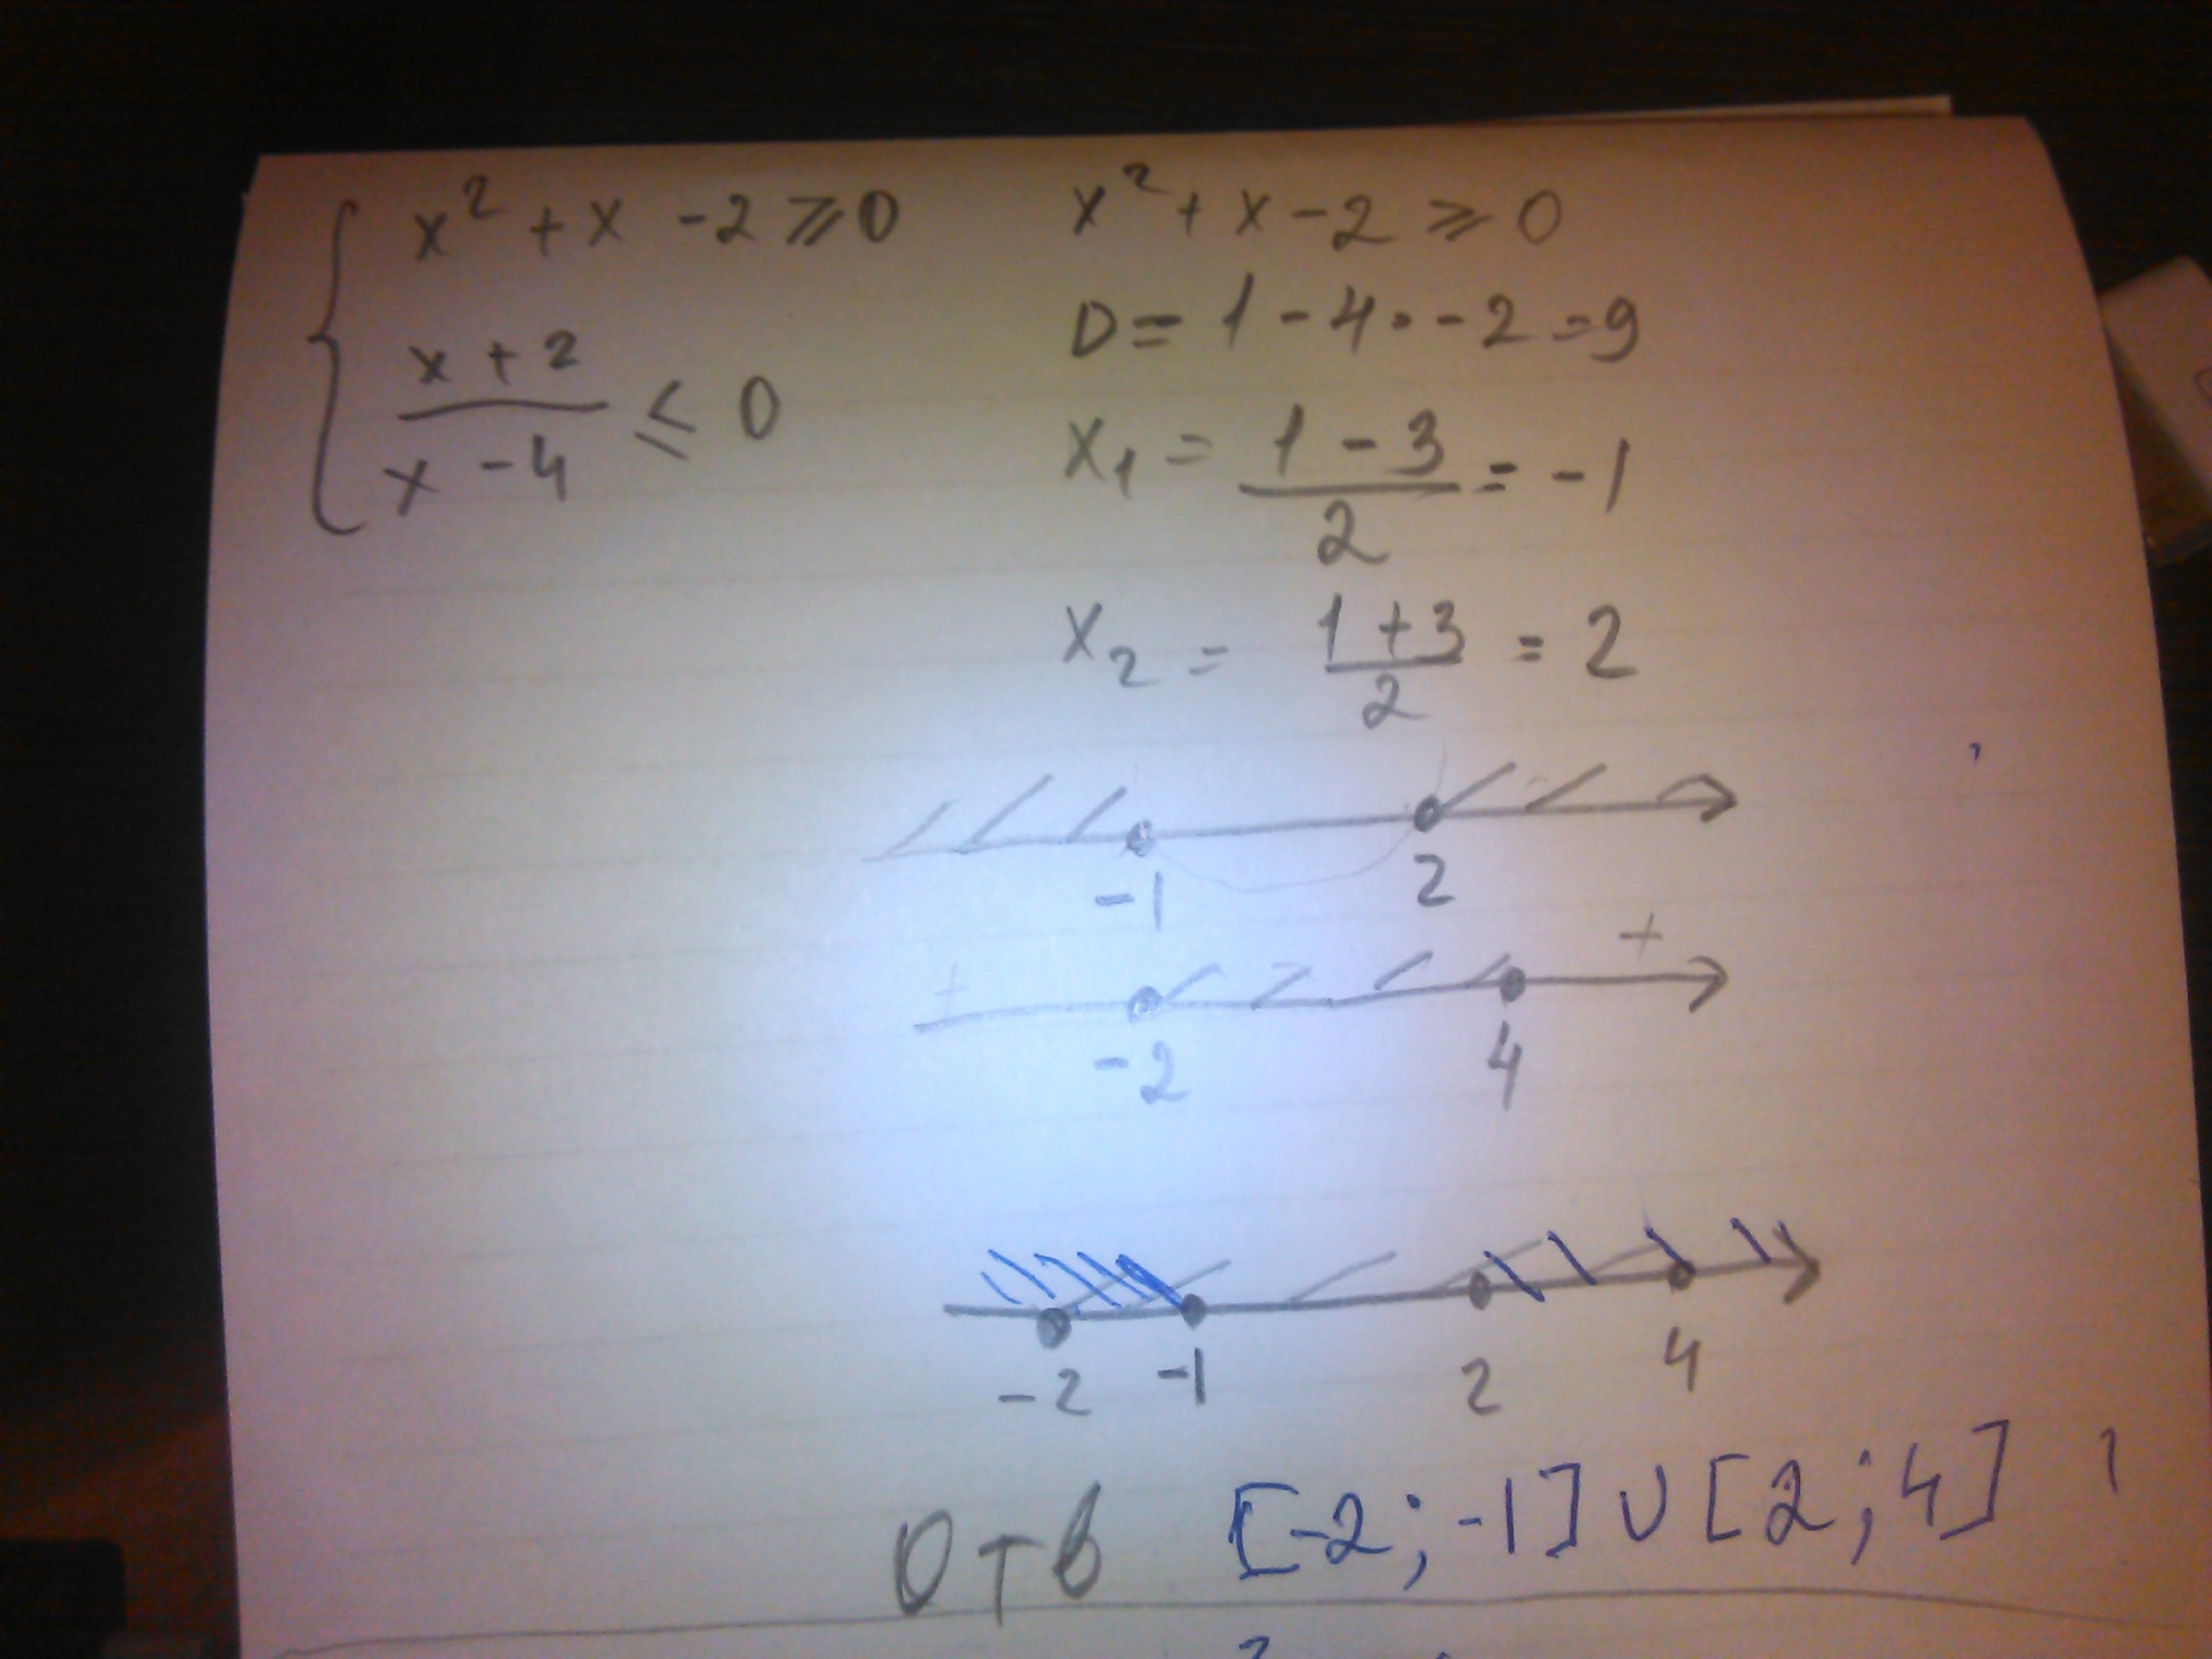 x² + x - 2 ⩾ 0
(x + 2)/(x - 4) ≤ 0
x² + x - 2 ⩾ 0
D = 1 - 4 · -2 = 9
x₁ = (1 - 3)/2 = -1
x₂ = (1 + 3)/2 = 2
-1 2
+ +
-2 4
-2 -1 2 4
Отв [-2; -1] ∪ [2; 4]